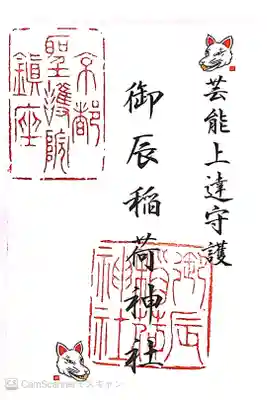 芸能上達守護
御辰稲荷神社
京都
聖護院
鎮座
御辰
稲荷
神社
CamScannerでスキャン